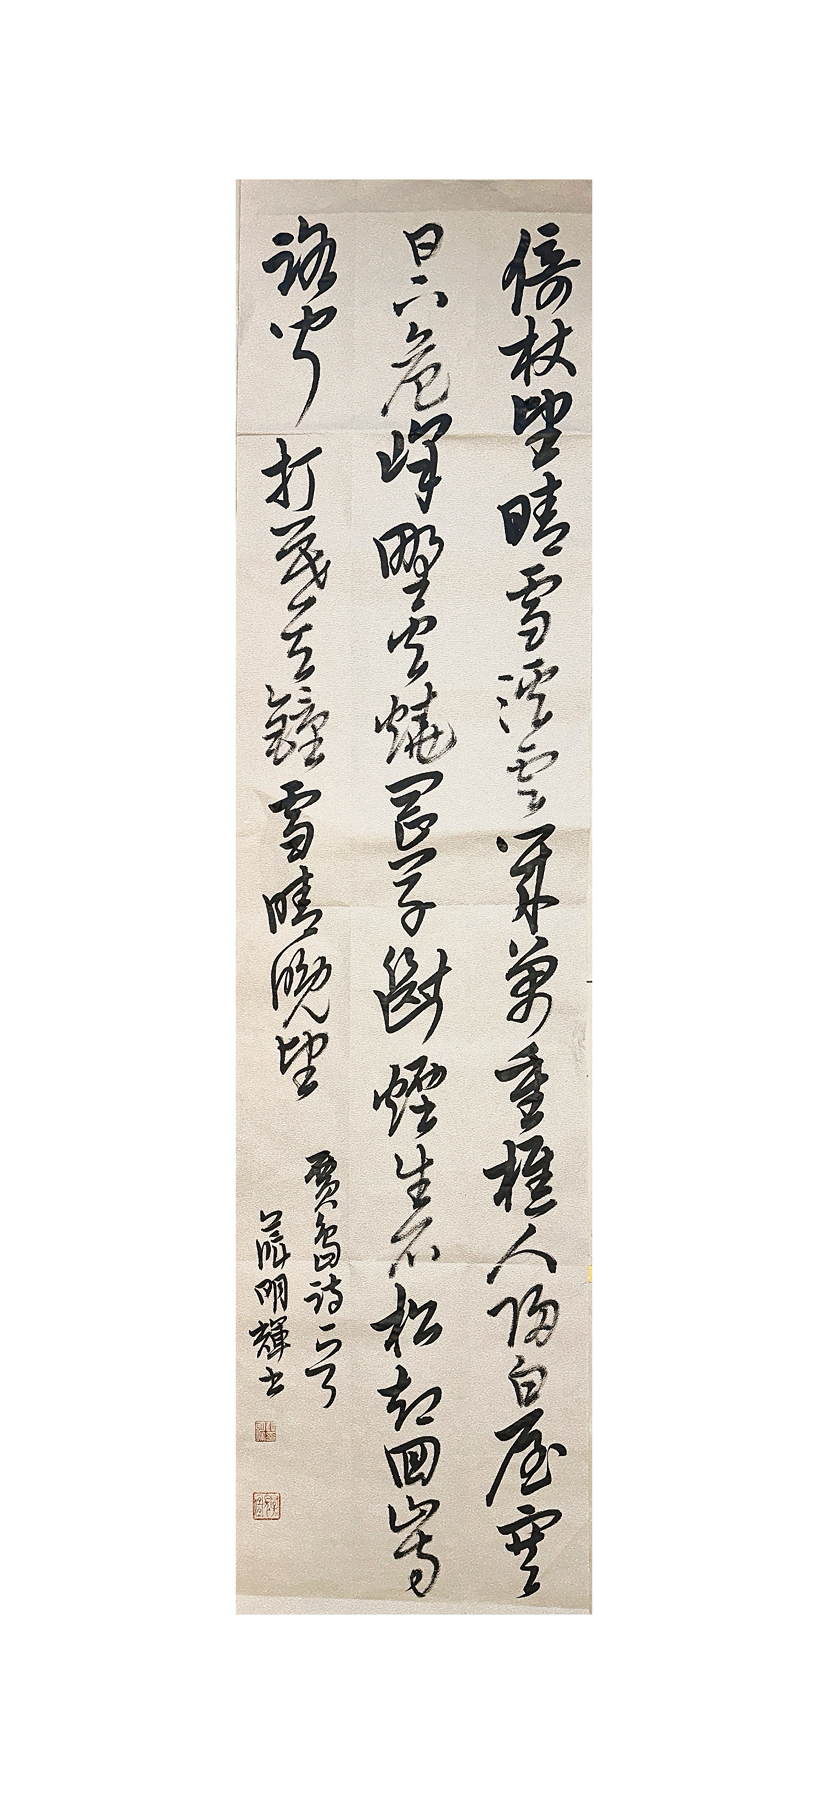 倚杖望晴雪溪雲幾萬重樵人歸白屋寒
日下危峰野火燒岡草斷煙生石松却回山寺
路聞打暮天鐘雪晴晚望
賈島詩一首
明輝書